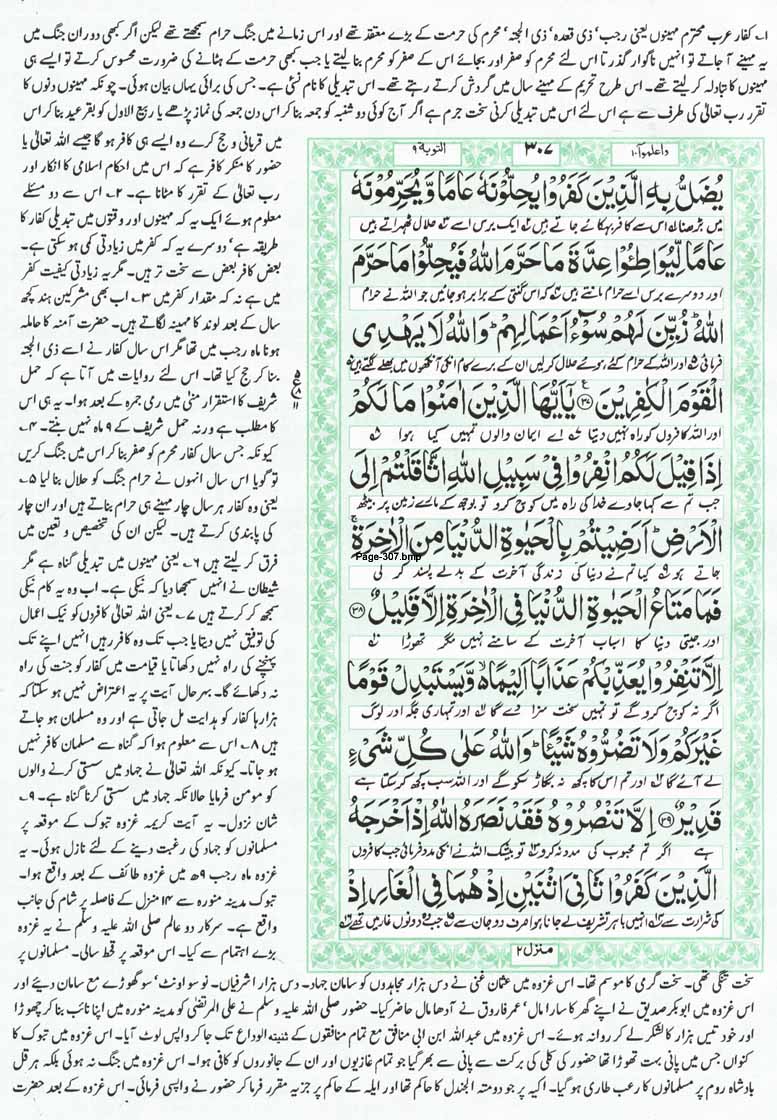 ۱۔ کفار عرب محترم مہینوں یعنی رجب، ذی قعدہ، ذی الحجہ، محرم کی حرمت کے بڑے معتقد تھے اور اس زمانے میں جنگ حرام سمجھتے تھے لیکن اگر کبھی دوران جنگ میں
یہ مہینے آ جاتے تو انہیں ناگوار گذرتا اس لئے محرم کو صفر اور بجائے اس کے صفر کو محرم بنا لیتے یا جب کبھی حرمت کے ہٹانے کی ضرورت محسوس کرتے تو ایسے ہی
مہینوں کا تبادلہ کر لیتے تھے۔ اس طرح تحریم کے مہینے سال میں گردش کرتے رہتے تھے۔ اس تبدیلی کا نام نسئی ہے۔ جس کی برائی یہاں بیان ہوئی۔ چونکہ مہینوں دنوں کا
تقرر رب تعالیٰ کی طرف سے ہے اس لئے اس میں تبدیلی کرنی سخت جرم ہے اگر آج کوئی دو شنبہ کو جمعہ بنا کر اس دن جمعہ کی نماز پڑھے یا ربیع الاول کو بقر عید بنا کر اس
میں قربانی و حج کرے وہ ایسے ہی کافر ہو گا جیسے اللہ تعالیٰ یا
حضور کا منکر کافر ہے کہ اس میں احکام اسلامی کا انکار اور
رب تعالیٰ کے تقرر کا مٹانا ہے۔ ۲۔ اس سے دو مسئلے
معلوم ہوئے ایک یہ کہ مہینوں اور وقتوں میں تبدیلی کفار کا
طریقہ ہے، دوسرے یہ کہ کفر میں زیادتی کمی ہو سکتی ہے۔
بعض کافر بعض سے سخت تر ہیں۔ مگر یہ زیادتی کیفیت کفر
میں ہے نہ کہ مقدار کفر میں ۳۔ اب بھی مشرکین ہند کچھ
سال کے بعد لوند کا مہینہ لگاتے ہیں۔ حضرت آمنہ کا حاملہ
ہونا ماہ رجب میں تھا مگر اس سال کفار نے اسے ذی الحجہ
بنا کر حج کیا تھا۔ اس لئے روایات میں آتا ہے کہ حمل
شریف کا استقرار منیٰ میں رمی جمرہ کے بعد ہوا۔ یہ ہی اس
کا مطلب ہے ورنہ حمل شریف کے ۹ ماہ نہیں بنتے۔ ۴۔
کیونکہ جس سال کفار محرم کو صفر بنا کر اس میں جنگ کریں
تو گویا اس سال انہوں نے حرام جنگ کو حلال بنا لیا ۵۔
یعنی وہ کفار ہر سال چار مہینے ہی حرام بناتے ہیں اور ان چار
کی پابندی کرتے ہیں۔ لیکن ان کی تخصیص و تعین میں
فرق کر لیتے ہیں ۶۔ یعنی مہینوں میں تبدیلی گناہ ہے مگر
شیطان نے انہیں سمجھا دیا کہ نیکی ہے۔ اب وہ یہ کام نیکی
سمجھ کر کرتے ہیں ۷۔ یعنی اللہ تعالیٰ کافروں کو نیک اعمال
کی توفیق نہیں دیتا یا جب تک وہ کافر رہیں انہیں اپنے تک
پہنچنے کی راہ نہیں دکھاتا یا قیامت میں کفار کو جنت کی راہ
نہ دکھائے گا۔ بہرحال آیت پر یہ اعتراض نہیں ہو سکتا کہ
ہزارہا کفار کو ہدایت مل جاتی ہے اور وہ مسلمان ہو جاتے
ہیں ۸۔ اس سے معلوم ہوا کہ گناہ سے مسلمان کافر نہیں
ہو جاتا۔ کیونکہ اللہ تعالیٰ نے جہاد میں سستی کرنے والوں
کو مومن فرمایا حالانکہ جہاد میں سستی کرنا گناہ ہے۔ ۹۔
شان نزول۔ یہ آیت کریمہ غزوہ تبوک کے موقعہ پر
مسلمانوں کو جہاد کی رغبت دینے کے لئے نازل ہوئی۔ یہ
غزوہ ماہ رجب ۹ھ میں غزوہ طائف کے بعد واقع ہوا۔
تبوک مدینہ منورہ سے ۱۴ منزل کے فاصلہ پر شام کی جانب
واقع ہے۔ سرکار دو عالم صلی اللہ علیہ وسلم نے یہ غزوہ
بڑے اہتمام سے کیا۔ اس موقعہ پر قحط سالی۔ مسلمانوں پر
التوبۃ ۹
۳۰۷
واعلموا ۱۰
یُضَلُّ بِہِ الَّذِیْنَ کَفَرُوْا یُحِلُّوْنَہٗ عَامًا وَّیُحَرِّمُوْنَہٗ
میں بڑھنا اس سے کافر بہکائے جاتے ہیں ایک برس اسے حلال ٹھہراتے ہیں
عَامًا لِّیُوَاطِئُوْا عِدَّۃَ مَا حَرَّمَ اللہُ فَیُحِلُّوْا مَا حَرَّمَ
اور دوسرے برس اسے حرام مانتے ہیں کہ اس گنتی کے برابر ہو جائیں جو اللہ نے حرام
اللہُ ؕ زُیِّنَ لَہُمْ سُوْٓءُ اَعْمَالِہِمْ ؕ وَاللہُ لَا یَہْدِی
فرمائی اور اللہ کے حرام کئے ہوئے حلال کر لیں ان کے برے کام انکی آنکھوں میں بھلے لگتے ہیں
الْقَوْمَ الْکٰفِرِیْنَ ﴿۳۷﴾ یٰۤاَیُّہَا الَّذِیْنَ اٰمَنُوْا مَا لَکُمْ
اور اللہ کافروں کو راہ نہیں دیتا اے ایمان والوں تمہیں کیا ہوا
اِذَا قِیْلَ لَکُمُ انْفِرُوْا فِیْ سَبِیْلِ اللہِ اثَّاقَلْتُمْ اِلَی
جب تم سے کہا جاوے خدا کی راہ میں کوچ کرو تو بوجھ کے مارے زمین پر بیٹھ
الْاَرْضِ ؕ اَرَضِیْتُمْ بِالْحَیٰوۃِ الدُّنْیَا مِنَ الْاٰخِرَۃِ ۚ
Page-307.bmp
جاتے ہو کیا تم نے دنیا کی زندگی آخرت کے بدلے پسند کر لی
فَمَا مَتَاعُ الْحَیٰوۃِ الدُّنْیَا فِی الْاٰخِرَۃِ اِلَّا قَلِیْلٌ ﴿۳۸﴾
اور جیتی دنیا کا اسباب آخرت کے سامنے نہیں مگر تھوڑا
اِلَّا تَنْفِرُوْا یُعَذِّبْکُمْ عَذَابًا اَلِیْمًا ۬ۙ وَّیَسْتَبْدِلْ قَوْمًا
اگر نہ کوچ کرو گے تو تمہیں سخت سزا دے گا اور تمہاری جگہ اور لوگ
غَیْرَکُمْ وَلَا تَضُرُّوْہُ شَیْئًا ؕ وَاللہُ عَلٰی کُلِّ شَیْءٍ
لے آئے گا اور تم اس کا کچھ نہ بگاڑ سکو گے اور اللہ سب کچھ کر سکتا ہے
قَدِیْرٌ ﴿۳۹﴾ اِلَّا تَنْصُرُوْہُ فَقَدْ نَصَرَہُ اللہُ اِذْ اَخْرَجَہُ
ہے اگر تم محبوب کی مدد نہ کرو تو بیشک اللہ نے انکی مدد فرمائی جب کافروں
الَّذِیْنَ کَفَرُوْا ثَانِیَ اثْنَیْنِ اِذْ ہُمَا فِی الْغَارِ اِذْ
کی شرارت سے انہیں باہر تشریف لے جانا ہوا صرف دو جان سے جب وہ دونوں غار میں تھے
منزل ۲
سخت تنگی تھی۔ سخت گرمی کا موسم تھا۔ اس غزوہ میں عثمان غنی نے دس ہزار مجاہدوں کو سامان جہاد۔ دس ہزار اشرفیاں۔ نو سو اونٹ، سو گھوڑے مع سامان دیئے اور
اس غزوہ میں ابوبکر صدیق نے اپنے گھر کا سارا مال، عمر فاروق نے آدھا مال حاضر کیا۔ حضور صلی اللہ علیہ وسلم نے علی المرتضیٰ کو مدینہ منورہ میں اپنا نائب بنا کر چھوڑا
اور خود تیس ہزار کا لشکر لے کر روانہ ہوئے۔ اس غزوہ میں عبداللہ ابن ابی منافق مع تمام منافقوں کے ثنیتہ الوداع تک جا کر واپس لوٹ آیا۔ اس غزوہ میں تبوک کا
کنواں جس میں پانی بہت تھوڑا تھا حضور کی کلی کی برکت سے پانی سے بھر گیا جو تمام غازیوں اور ان کے جانوروں کو کافی ہوا۔ اس غزوہ میں جنگ نہ ہوئی بلکہ ہرقل
بادشاہ روم پر مسلمانوں کا رعب طاری ہو گیا۔ اکیہ پر جو دومتہ الجندل کا حاکم تھا اور ایلہ کے حاکم پر جزیہ مقرر فرما کر حضور نے واپسی فرمائی۔ اس غزوہ کے بعد حضرت